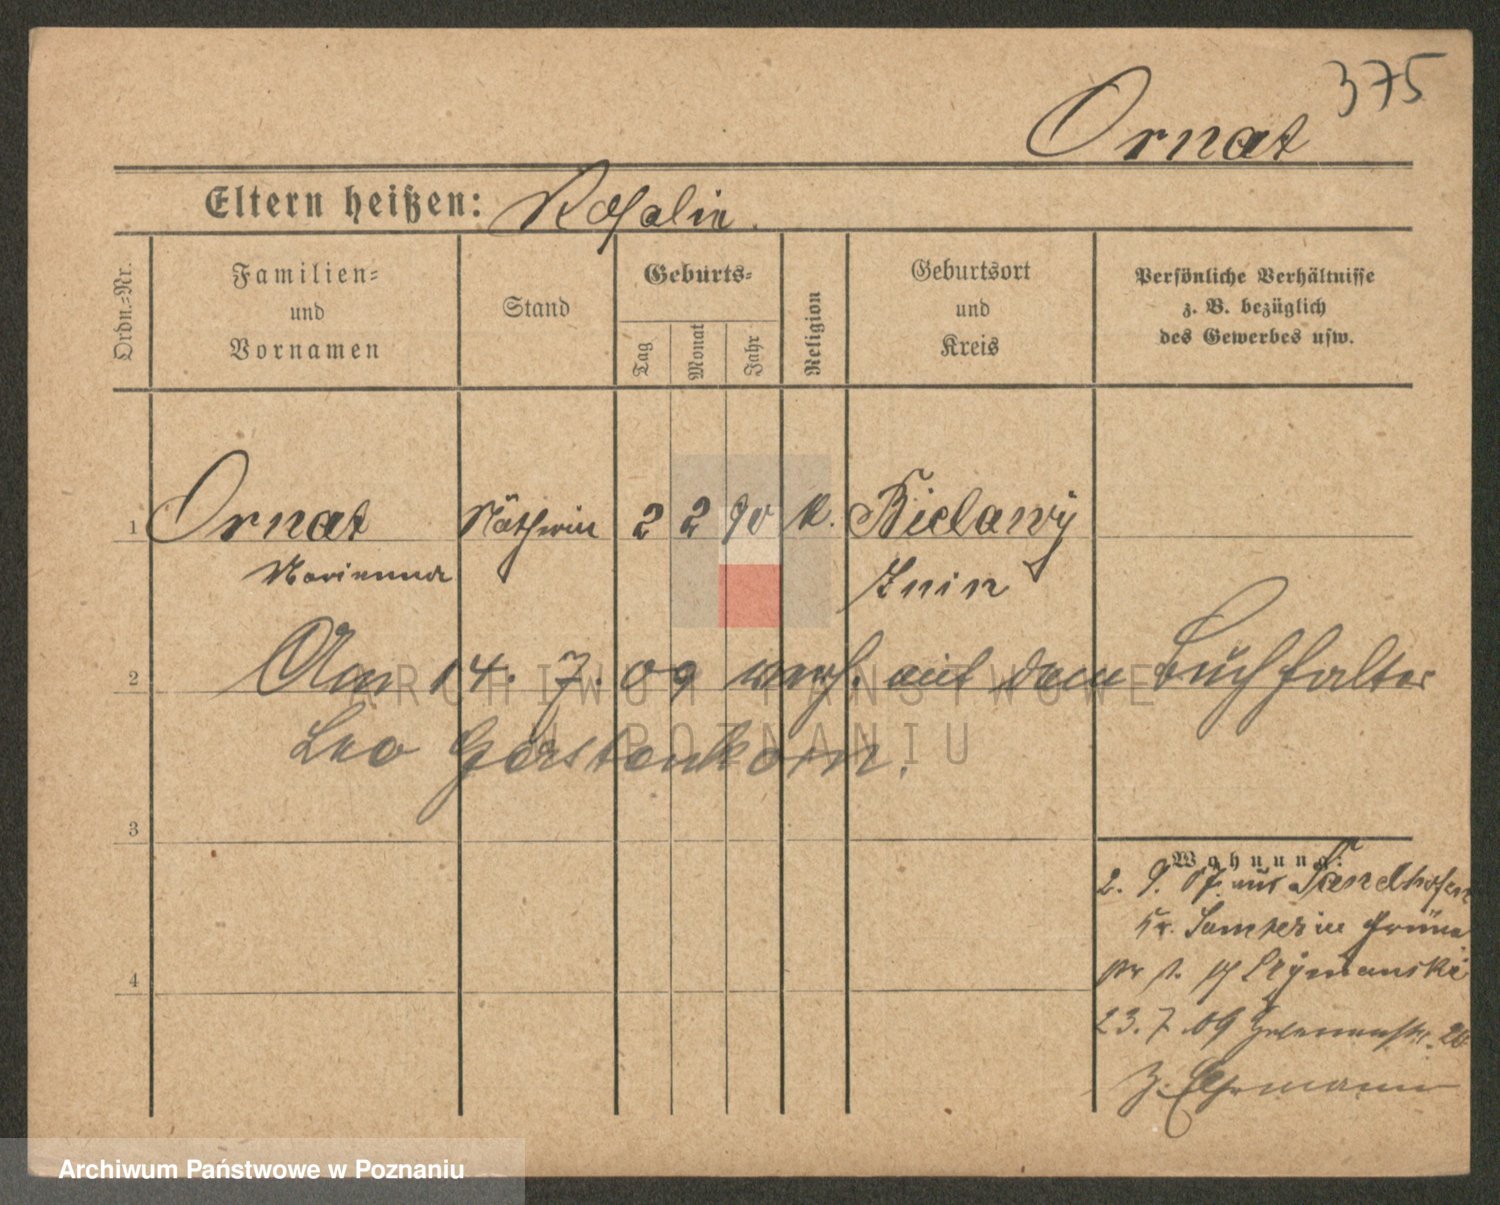 375
Ornat
Eltern heißen: Rosalie.
Ordn.-Nr.
Familien- und Vornamen
Stand
Geburts-
Tag
Monat
Jahr
Religion
Geburtsort und Kreis
Persönliche Verhältnisse z. B. bezüglich des Gewerbes usw.
1 Ornat Nätherin 2 2 90 k. Bielawy
Marianna Znin
2 Am 14. 7. 09 verh. mit dem Buchhalter
Leo Gerstenkorn.
3
Wohnung:
2. 9. 07 aus
Kr. Samter in
4
23. 7. 09 26
z. Ehrmann
ARCHIWUM PAŃSTWOWE
W POZNANIU
Archiwum Państwowe w Poznaniu